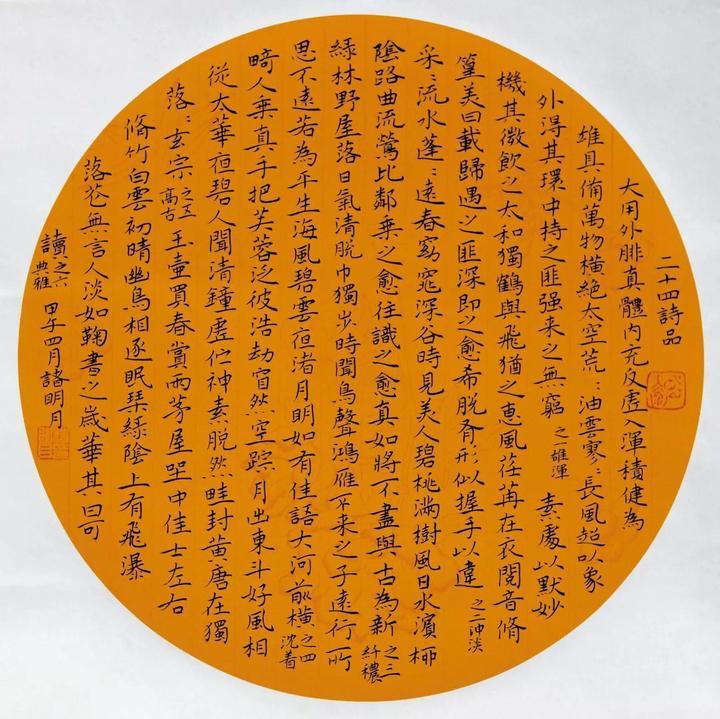 二十四詩品
大用外腓真體内充反虛入渾積健為
雄具備萬物橫絶太空荒：油雲寥：長風超以象
外得其環中持之匪强来之無窮 之一雄渾 素處以默妙
機其微飲之太和獨鶴與飛猶之惠風荏苒在衣閲音脩
篁美曰載歸遇之匪深即之愈希脱有形似握手以違 之二沖淡
采：流水蓬：遠春窈窕深谷時見美人碧桃滿樹風日水濱柳
陰路曲流鶯比鄰乘之愈往識之愈真如將不盡與古為新 之三纤穠
緑林野屋落日氣清脱巾獨步時聞鳥聲鴻雁不来之子遠行所
思不遠若為平生海風碧雲夜渚月明如有佳語大河前橫 之四沈着
畸人乘真手把芙蓉泛彼浩劫窅然空蹤月出東斗好風相
從太華夜碧人聞清鐘虛佇神素脱然畦封黄唐在獨
落：玄宗 之五高古 玉壺買春賞雨茅屋坐中佳士左右
脩竹白雲初晴幽鳥相逐眠琴緑陰上有飛瀑
落花無言人淡如鞠書之歲華其曰可
讀 之六典雅 甲午四月諸明月